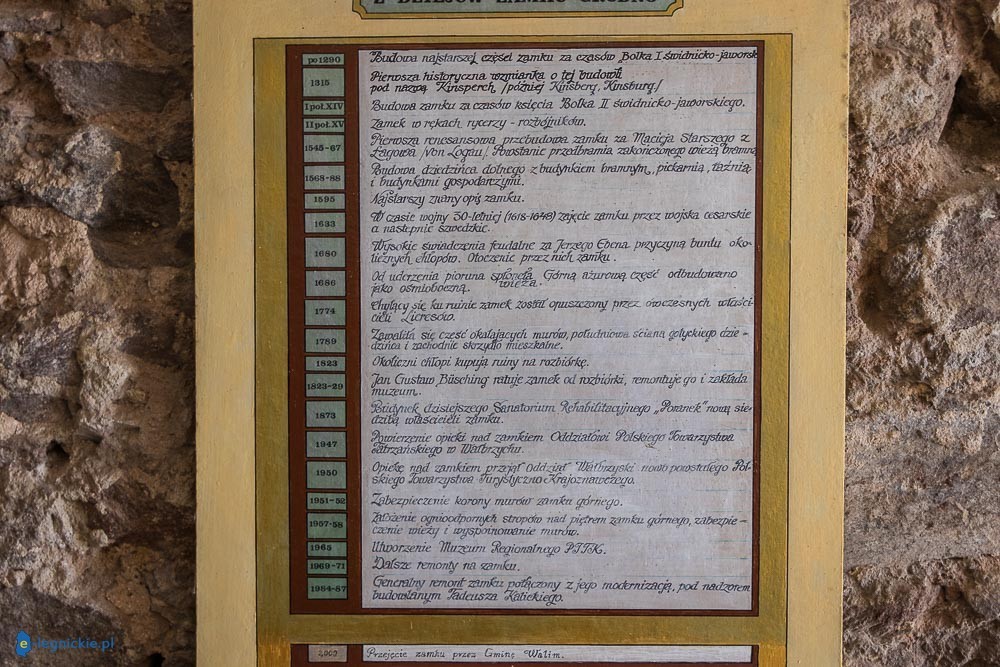 Z DZIEJÓW ZAMKU GRODNO
po 1290 Budowa najstarszej części zamku za czasów Bolka I świdnicko-jaworsk
1315 Pierwsza historyczna wzmianka o tej budowli
pod nazwą Kinsperch /później Kinsberg, Kinsburg/
I poł. XIV Budowa zamku za czasów księcia Bolka II świdnicko-jaworskiego.
II poł. XV Zamek w rękach rycerzy - rozbójników.
1545-67 Pierwsza renesansowa przebudowa zamku za Macieja Starszego z
Łagowa /Von Logau/. Powstanie przedbramia zakończonego wieżą bramną
1568-88 Budowa dziedzińca dolnego z budynkiem bramnym, piekarnią, łaźnią
i budynkami gospodarczymi.
1595 Najstarszy znany opis zamku.
1633 W czasie wojny 30-letniej (1618-1648) zajęcie zamku przez wojska cesarskie
a następnie szwedzkie.
1680 Wysokie świadczenia feudalne za Jerzego Ebena przyczyną buntu oko-
licznych chłopów. Otoczenie przez nich zamku.
1686 Od uderzenia pioruna spłonęła wieża. Górną ażurową część odbudowano
jako ośmioboczną.
1774 Chylący się ku ruinie zamek został opuszczony przez ówczesnych właści-
cieli Lieresów.
1789 Zawaliła się część okalających murów, południowa ściana gotyckiego dzie-
dzińca i zachodnie skrzydło mieszkalne.
1823 Okoliczni chłopi kupują ruiny na rozbiórkę.
1823-29 Jan Gustaw Büsching ratuje zamek od rozbiórki, remontuje go i zakłada
muzeum.
1873 Budynek dzisiejszego Sanatorium Rehabilitacyjnego „Poranek" nową sie-
dzibą właścicieli zamku.
1947 Powierzenie opieki nad zamkiem Oddziałowi Polskiego Towarzystwa
Tatrzańskiego w Wałbrzychu.
1950 Opiekę nad zamkiem przejął Oddział Wałbrzyski nowo powstałego Pol-
skiego Towarzystwa Turystyczno Krajoznawczego.
1951-52 Zabezpieczenie korony murów zamku górnego.
1957-58 Założenie ognioodpornych stropów nad piętrem zamku górnego, zabezpie-
czenie wieży i wyspoinowanie murów.
1965 Utworzenie Muzeum Regionalnego PTTK.
1969-71 Dalsze remonty na zamku.
1984-87 Generalny remont zamku połączony z jego modernizacją, pod nadzorem
budowlanym Tadeusza Kabickiego.
2000 Przejęcie zamku przez Gminę Walim.
e-legnickie.pl